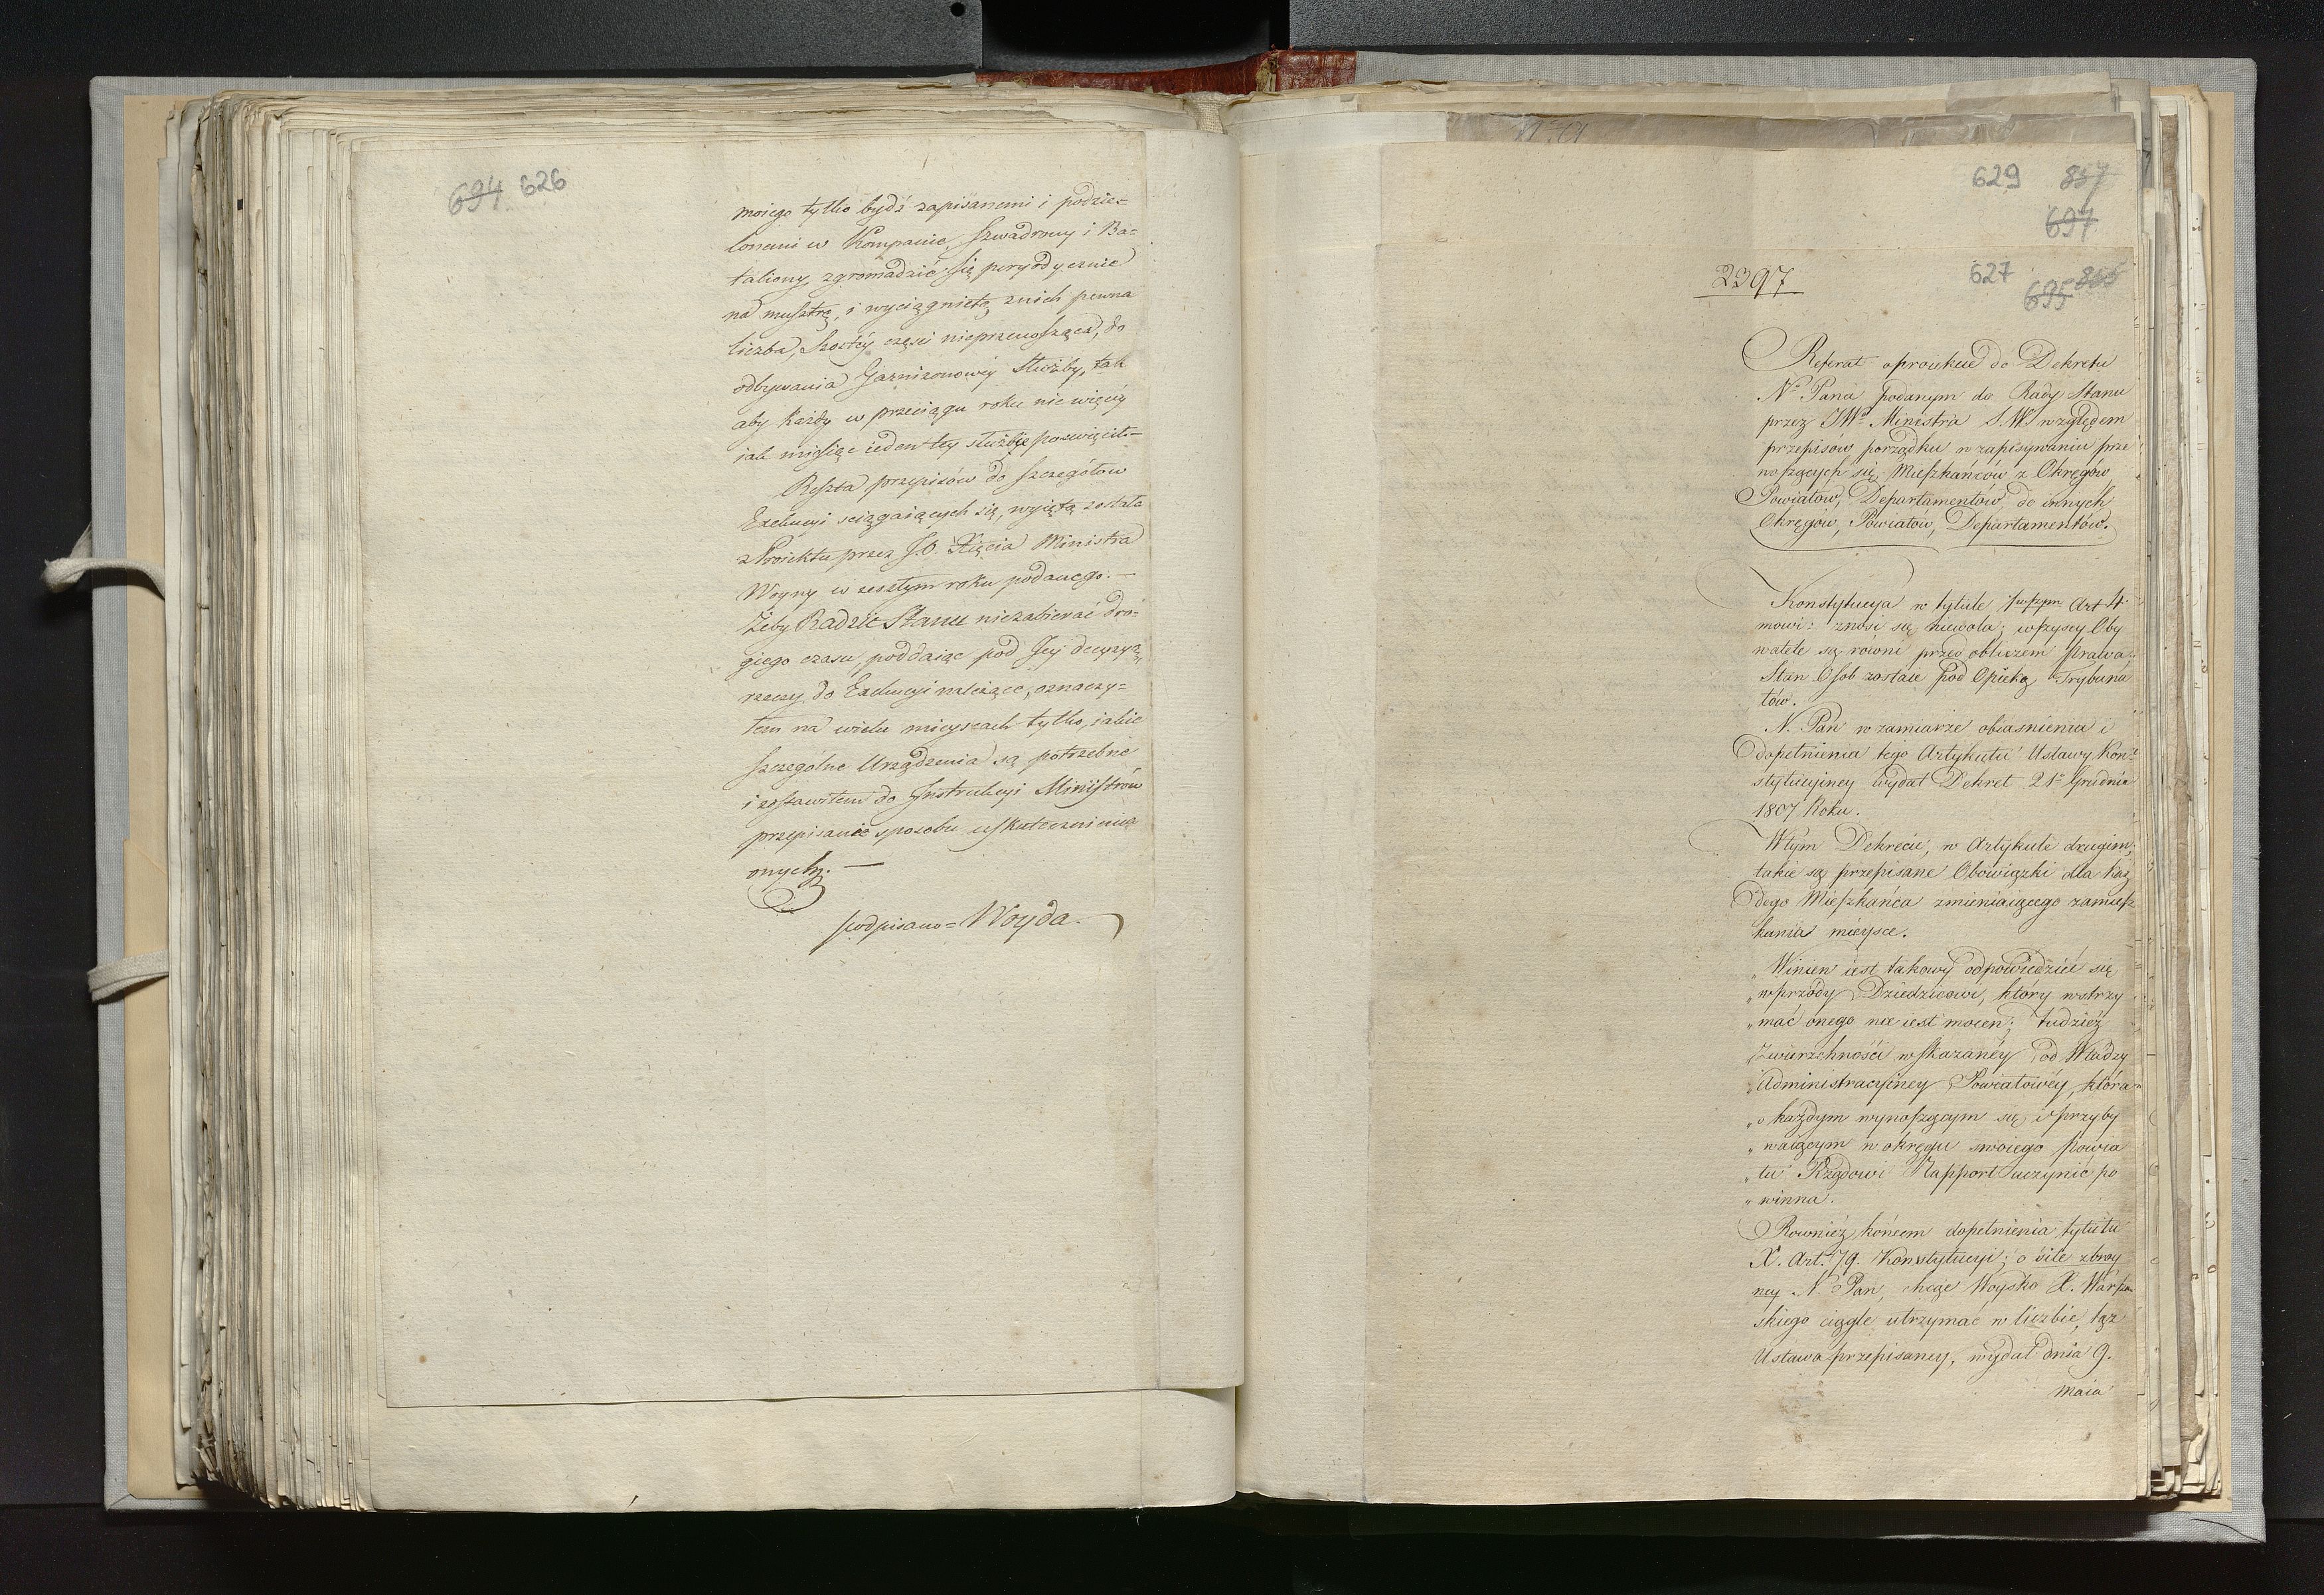 694 626
moiego tylko bydź zapisanemi i podzie-
lonemi w Kompanie, Szwadrony i Ba-
taliony, zgromadzić się peryodycznie
na musztrę, i wyciągniętą z nich pewna
liczba, szostéy części nieprzenosząca, do
odbywania Garnizonowéy Służby, tak
aby każdy w przeciągu roku nie więcéy
jak miesiąc ieden tey służbie poswięcił.-
Reszta przepisów do szczegółow
Exekucyi sciągaiących się, wyiętą została
z Proiektu przez J.O. Xięcia Ministra
Woyny w zeszłym roku podanego.-
Żeby Radzie Stanu niezabierać dro-
giego czasu, poddaiąc pod Jey decyzyą,
rzeczy do Exekucyi należące, oznaczy-
łem na wielu mieyscach tylko, iakie
szczególne Urządzenia są potrzebne
i zostawiłem do Instrukcyi Ministrów
przepisanie sposobu uskutecznienia
onych.-
podpisano = Woyda.
629 857
697
2397
627
695 855
Referat o proiekcie do Dekretu
N. Pana podanym do Rady Stanu
przez JW. Ministra S.W. względem
przepisów porządku w zapisywaniu prze
noszących się Mieszkańców z Okręgów
Powiatów, Departamentów, do innych
Okręgów, Powiatów, Departamentów.
Konstytucya w tytule 1wszym Art 4.
mowi: znosi się niewola; wszyscy Oby
watele są równi przed obliczem Prawa;
Stan Osob zostaie pod Opieką Trybuna
łów.
N. Pan w zamiarze obiasnienia i
dopełnienia tego Artykułu Ustawy Kon-
stytucyiney wydał Dekret 21. Grudnia
1807 Roku.
W tym Dekrecie, w Artykule drugim,
takie są przepisane Obowiązki dla każ
dego Mieszkańca zmieniaiącego zamiesz
kania miéysce.
„Winien iest takowy odpowiedzieć się
„wprzódy Dziedzicowi, który wstrzy
„mać onego nie iest mocen; tudzież
„Zwierzchności wskazanéy od Władzy
„Administracyiney Powiatowéy, która
„o każdym wynoszącym się i przyby
„waiącym w okręgu swoiego powia
„tu Rządowi Rapport uczynić po
„winna.
Rownież końcem dopełnienia tytułu
X. Art. 79. Konstytucyi; o sile zbroy
ney N. Pan, chcąc Woysko X. Warszaw
skiego ciągle utrzymać w liczbie, tąż
Ustawą przepisaney, wydał dnia 9.
Maia